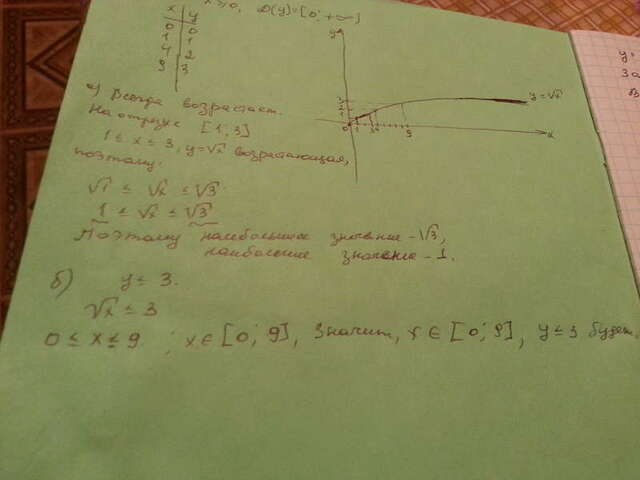 x ≥ 0, D(y) = [0; +∞]
x y
0 0
1 1
4 2
9 3
y
3
2
1
0 1 3 4 9
x
y = √x
а) Всегда возрастает.
На отрезке [1; 3]
1 ≤ x ≤ 3, y = √x возрастающая,
поэтому.
√1 ≤ √x ≤ √3.
1 ≤ √x ≤ √3
Поэтому наибольшее значение - √3,
наибольшее значение - 1.
б) y ≤ 3.
√x ≤ 3
0 ≤ x ≤ 9 ; x ∈ [0; 9], Значит, x ∈ [0; 9], y ≤ 3 будет.
y =
За